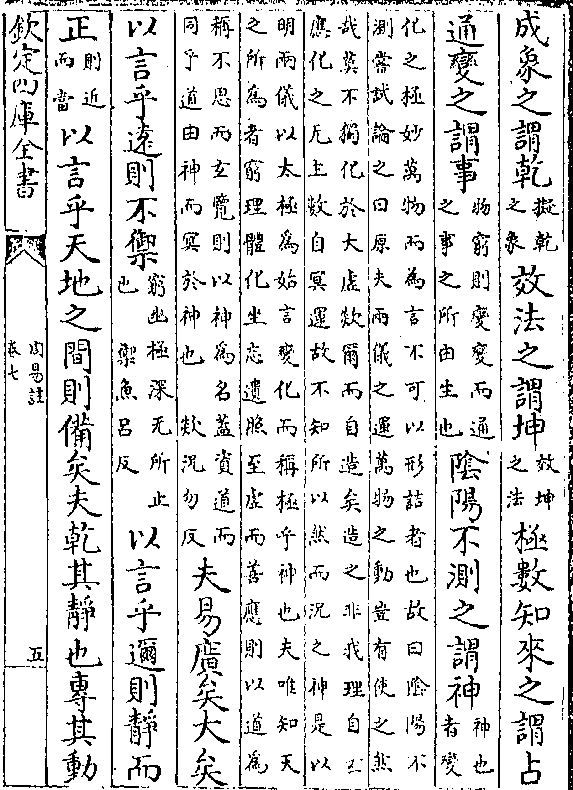 成象之謂乾擬乾之象效法之謂坤效坤之法極數知來之謂占
通變之謂事物窮則變變而通之事之所由生也陰陽不測之謂神神也者變
化之極妙萬物而為言不可以形詰者也故曰陰陽不
測嘗試論之曰原夫兩儀之運萬物之動豈有使之然
哉莫不獨化於大虛欻爾而自造矣造之非我理自玄
應化之无主數自冥運故不知所以然而況之神是以
明兩儀以太極為始言變化而稱極乎神也夫唯知天
之所為者窮理體化坐忘遺照至虛而善應則以道為
稱不思而玄覽則以神為名蓋資道而同乎道由神而冥於神也 欻況勿反夫易廣矣大矣
以言乎遠則不禦窮幽極深无所止也 禦魚呂反以言乎邇則靜而
正則近而當以言乎天地之間則備矣夫乾其靜也專其動
欽定四庫全書
周易註
卷七
五